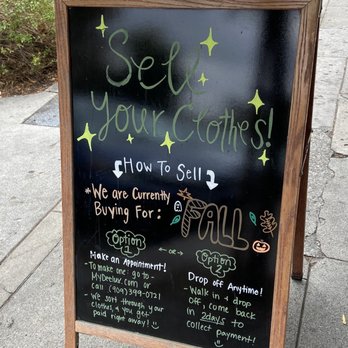 Sell
Your Clothes!
How To Sell
*We are Currently
Buying For: FALL
Option 1
Make an Appointment!
- To make one: go to -
or
call
- We sort through your
clothes & you get
paid right away!
← or →
Option 2
Drop off Anytime!
- Walk in & drop
off, come back
in 2days to
collect payment!